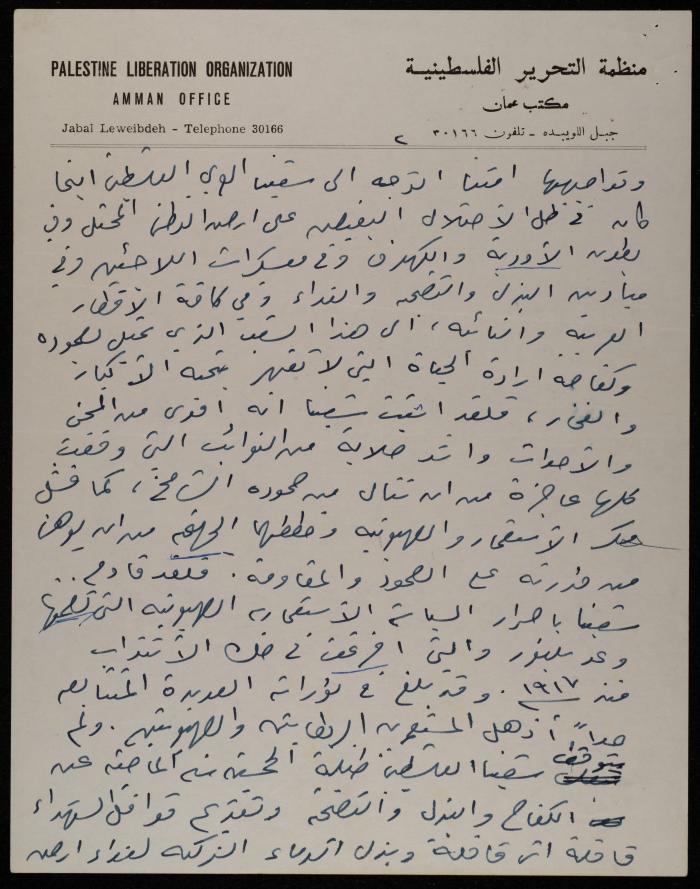 PALESTINE LIBERATION ORGANIZATION
AMMAN OFFICE
Jabal Leweibdeh - Telephone 30166
منظمة التحرير الفلسطينية
مكتب عمان
جبل اللويبده - تلفون ٣٠١٦٦
٢
امتنا التوجه الى شعبنا العربي الفلسطيني اينما
كان في ظل الاحتلال البغيض على ارض الوطن المحتل وفي
بطون الأودية والكهوف وفي معسكرات اللاجئين وفي
ميادين البذل والتضحية والفداء وفي كافة الأقطار
العربية ، الى هذا الشعب الذي يمثل بصموده
وكفاحه ارادة الحياة التي لا تقهر بتحية الأكبار
والفخار ، فلقد اثبت شعبنا انه اقوى من المحن
والأحداث واشد صلابة من النوائب التي وقفت
كلها عاجزة من ان تنال من صموده الشامخ ، كما فشل
الاستعمار والصهيونية وخططهما من ان يوهن
من قدرته على الصمود والمقاومة . فلقد قاوم
شعبنا باصرار السياسة الاستعمارية الصهيونية التي
وعد بلفور والتي في ظل الأنتداب
منذ ١٩١٧ . وقد بلغ في ثوراته العديدة المتتابعة
حداً أذهل المستعمرين البريطانيين والصهيونيين . ولم
يتوقف شعبنا الفلسطيني طيلة الخمسين سنه الماضية عن
الكفاح والبذل والتضحية وتقديم قوافل الشهداء
قافلة اثر قافلة وبذل الدماء الزكية لفداء ارض